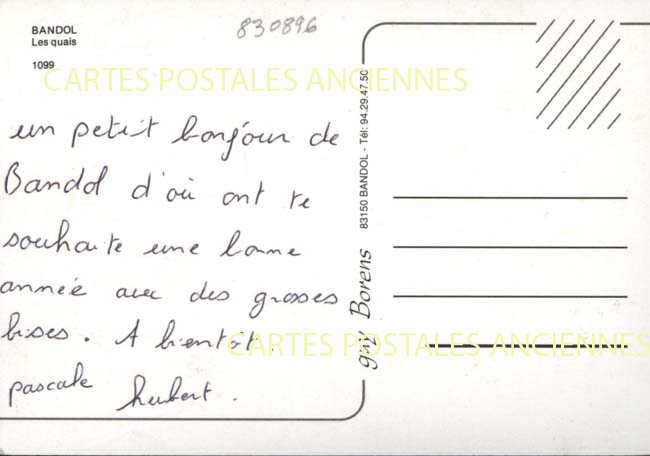 BANDOL
Les quais
1099
830896
CARTES POSTALES ANCIENNES
un petit bonjour de
Bandol d'où ont te
souhaite une bonne
année avec des grosses
bises. A bientôt.
pascale hubert.
guy Borens 83150 BANDOL - Tél: 94.29.47.50
CARTES POSTALES ANCIENNES